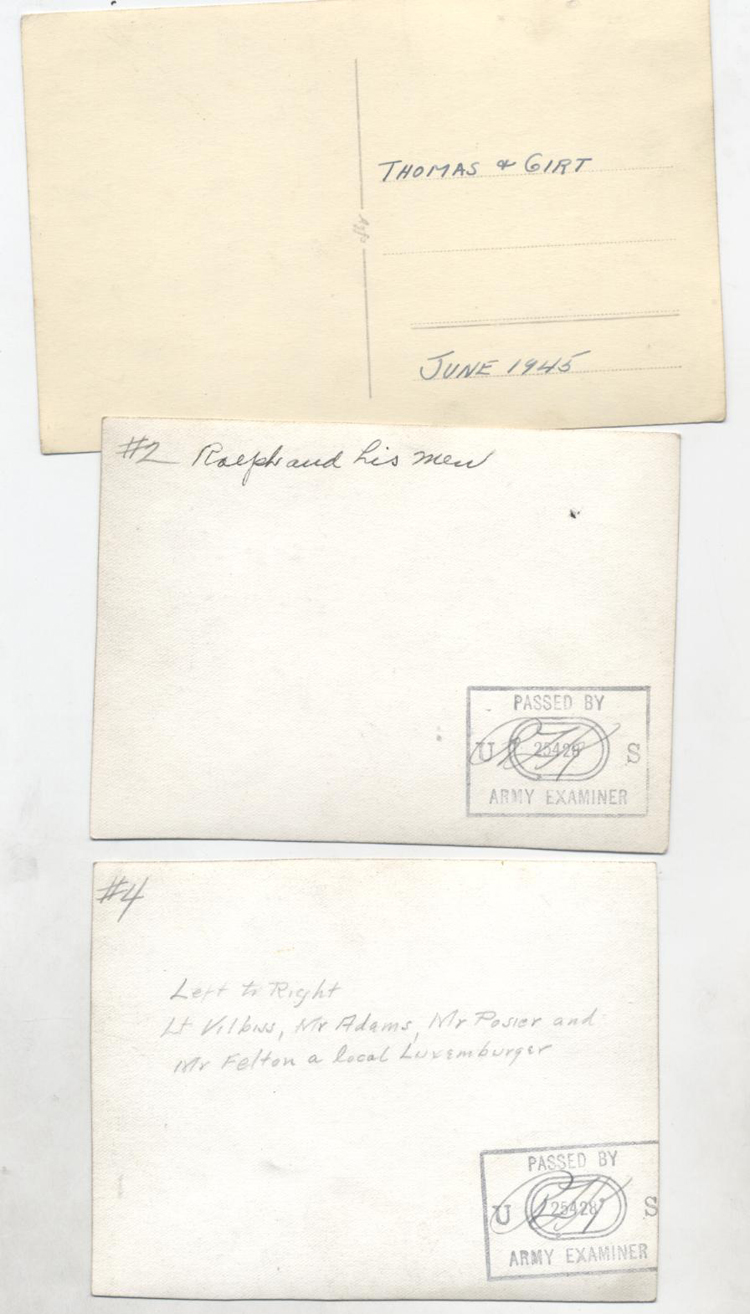 THOMAS & GIRT
JUNE 1945
#2 Ralph and his men
PASSED BY
U 25428 S
ARMY EXAMINER
#4
Left to Right
Lt Vilbiss, Mr Adams, Mr Posier and
Mr Felton a local Luxemburger
PASSED BY
U 25428 S
ARMY EXAMINER